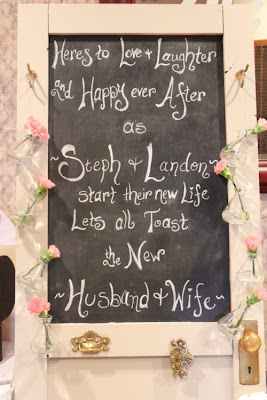 Heres to Love & Laughter
and Happy ever After
as
~Steph & Landon~
start their new Life
Lets all Toast
the New
~Husband & Wife~